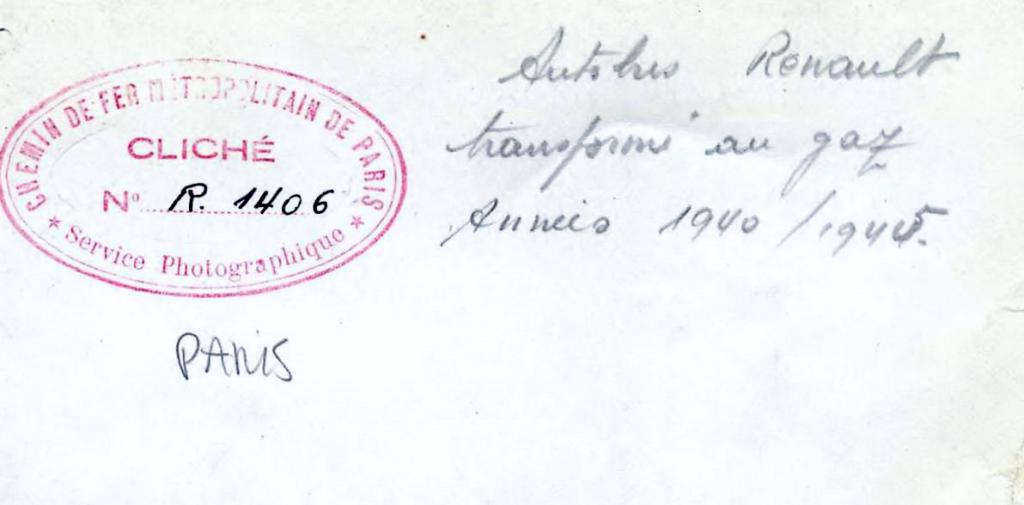 CHEMIN DE FER MÉTROPOLITAIN DE PARIS
CLICHÉ
N° R. 1406
* Service Photographique *
PARIS
Autobus Renault
transformé au gaz
Années 1940 / 1945.